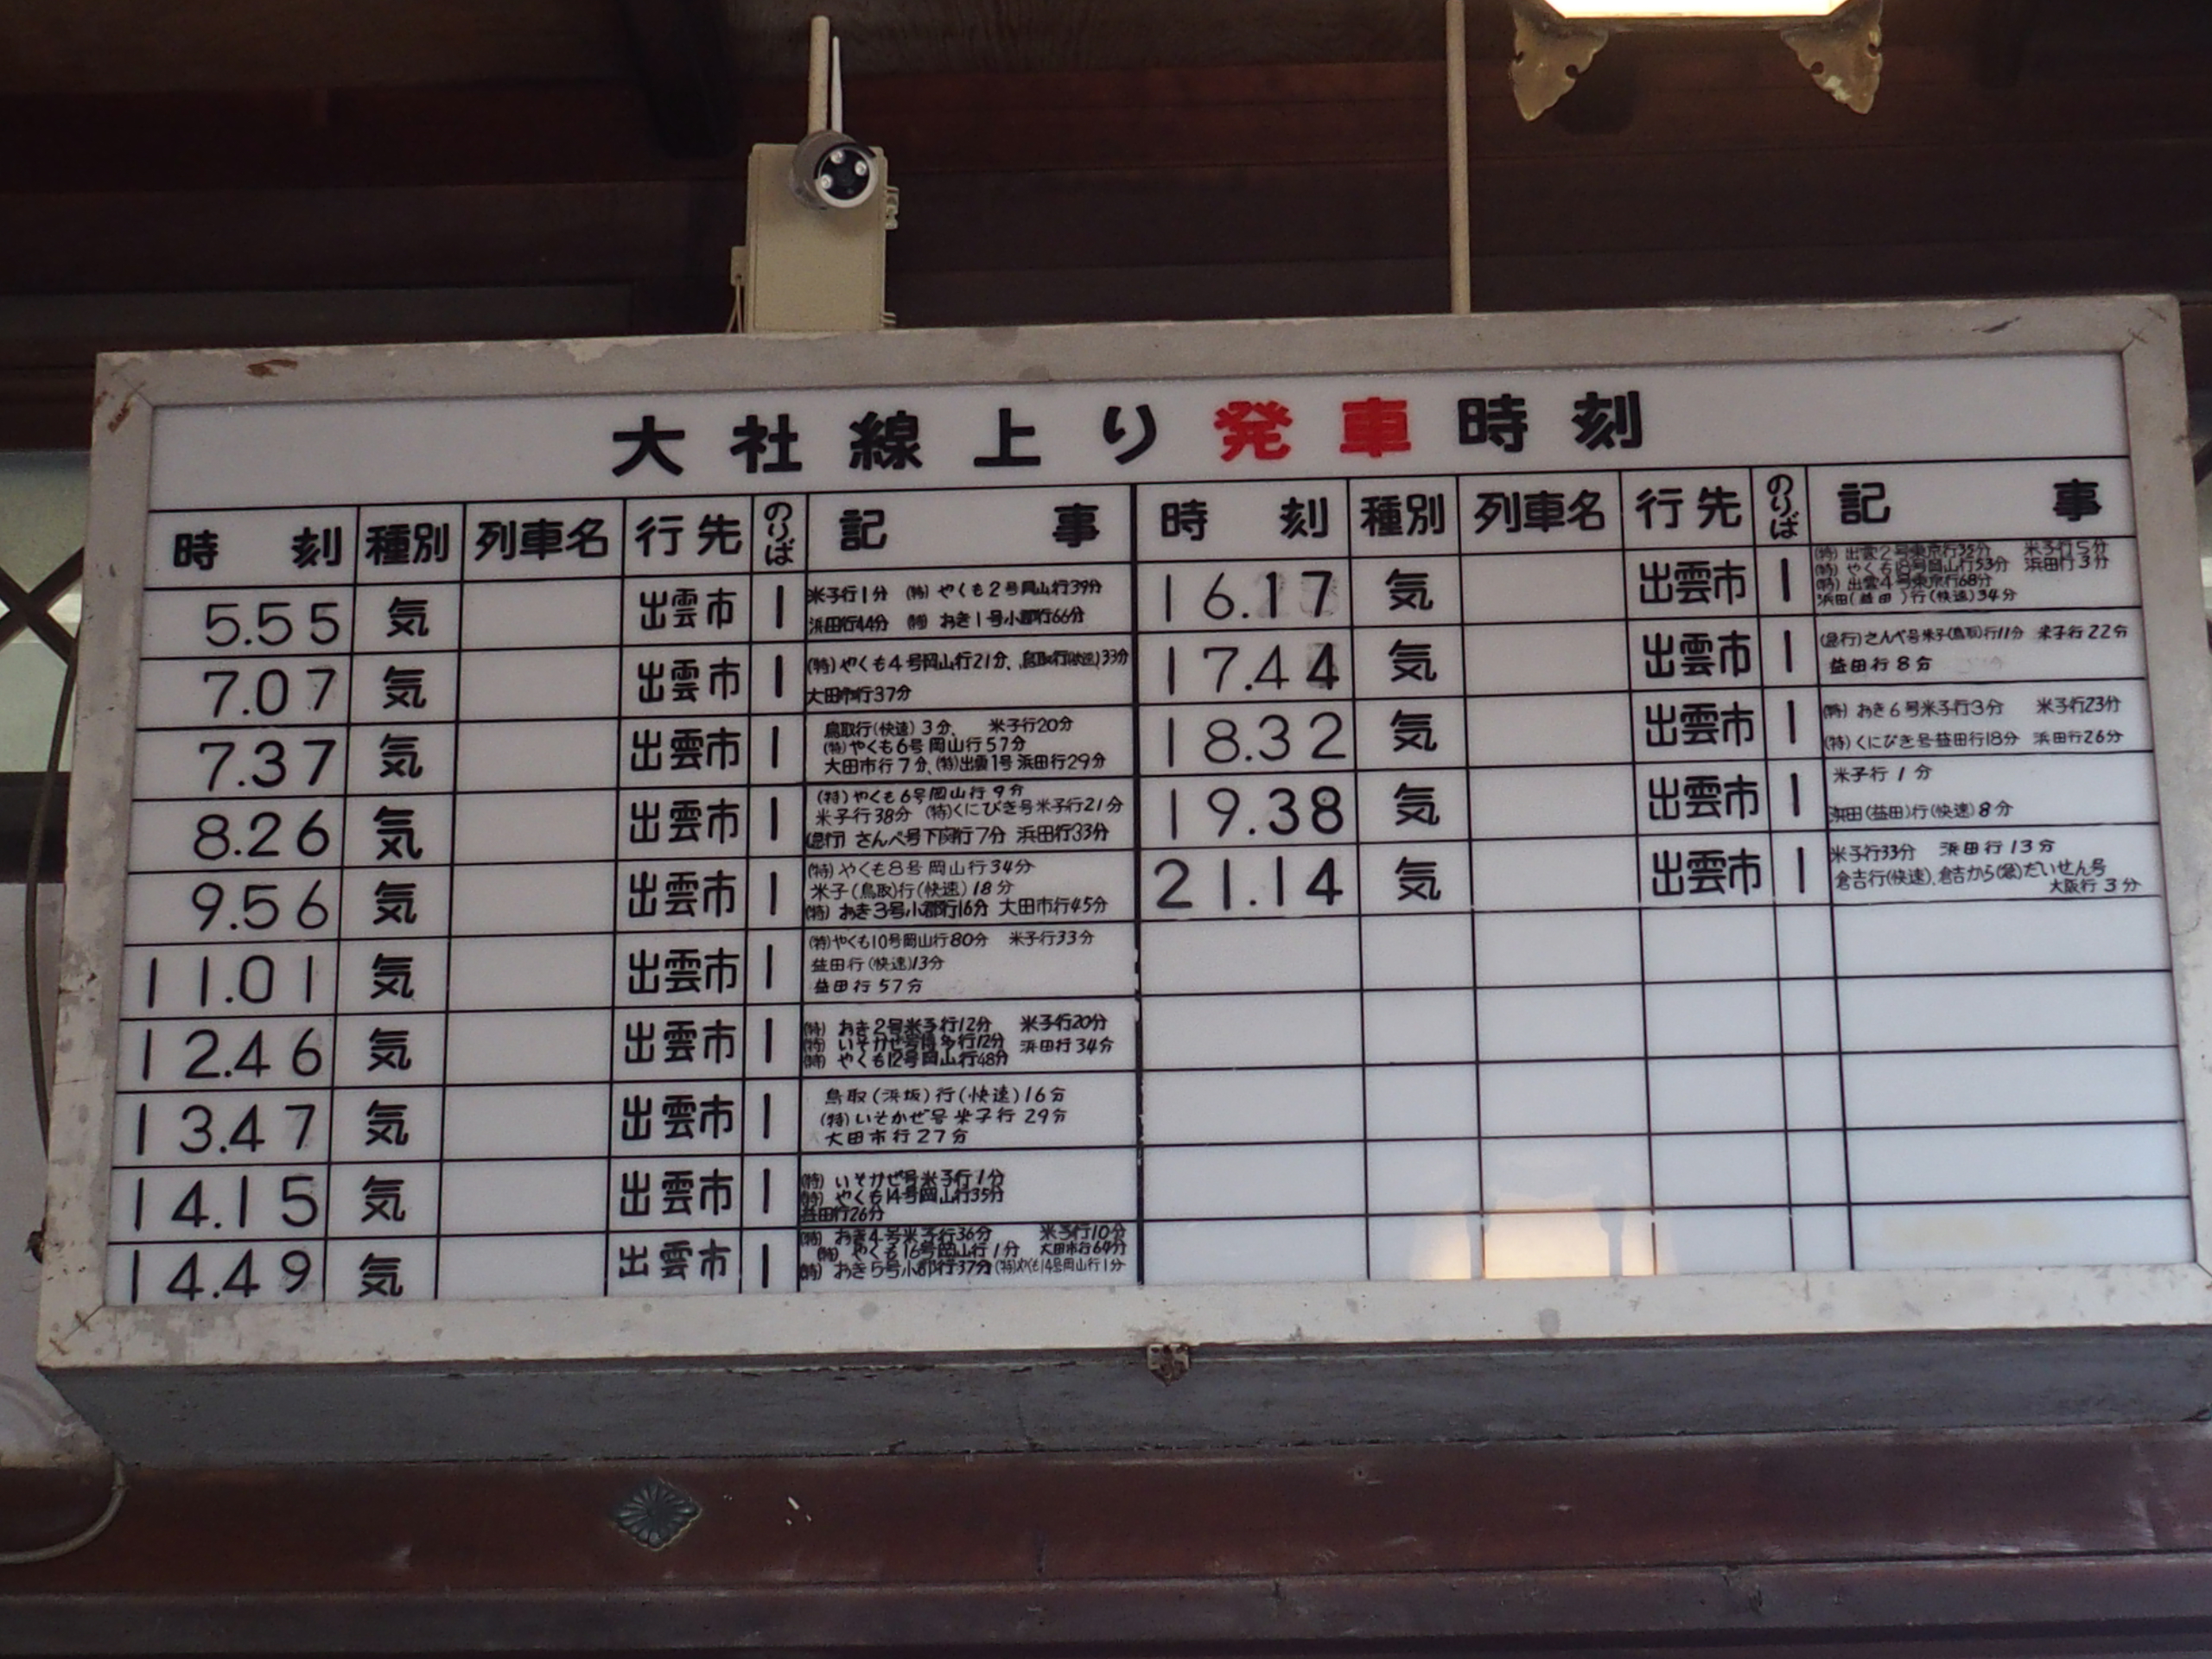 大社線上り発車時刻
時刻 種別 列車名 行先 のりば 記事
5.55 気 出雲市 1 米子行1分 (特)やくも2号岡山行39分
浜田行44分 (特)おき1号小郡行66分
7.07 気 出雲市 1 (特)やくも4号岡山行21分、鳥取行(快速)33分
大田市行37分
7.37 気 出雲市 1 鳥取行(快速)3分、 米子行20分
(特)やくも6号岡山行57分
大田市行7分、(特)出雲1号浜田行29分
8.26 気 出雲市 1 (特)やくも6号岡山行9分
米子行38分 (特)くにびき号米子行21分
(急行)さんべ号下関行7分 浜田行33分
9.56 気 出雲市 1 (特)やくも8号岡山行34分
米子(鳥取)行(快速)18分
(特)おき3号小郡行16分 大田市行45分
11.01 気 出雲市 1 (特)やくも10号岡山行80分 米子行33分
益田行(快速)13分
益田行57分
12.46 気 出雲市 1 (特)おき2号米子行12分 米子行20分
(特)いそかぜ号博多行12分 浜田行34分
(特)やくも12号岡山行48分
13.47 気 出雲市 1 鳥取(浜坂)行(快速)16分
(特)いそかぜ号米子行29分
大田市行27分
14.15 気 出雲市 1 (特)いそかぜ号米子行1分
(特)やくも14号岡山行35分
益田行26分
14.49 気 出雲市 1 (特)おき4号米子行36分 米子行10分
(特)やくも16号岡山行1分 大田市行64分
(特)おき5号小郡行37分(特)やくも14号岡山行1分
時刻 種別 列車名 行先 のりば 記事
16.17 気 出雲市 1 (特)出雲2号東京行35分 米子行5分
(特)やくも18号岡山行53分 浜田行3分
(特)出雲4号東京行68分
浜田(益田)行(快速)34分
17.44 気 出雲市 1 (急行)さんべ号米子(鳥取)行11分 米子行22分
益田行8分
18.32 気 出雲市 1 (特)おき6号米子行3分 米子行23分
(特)くにびき号益田行18分 浜田行26分
19.38 気 出雲市 1 米子行1分
浜田(益田)行(快速)8分
21.14 気 出雲市 1 米子行33分 浜田行13分
倉吉行(快速)、倉吉から(急)だいせん号
大阪行3分